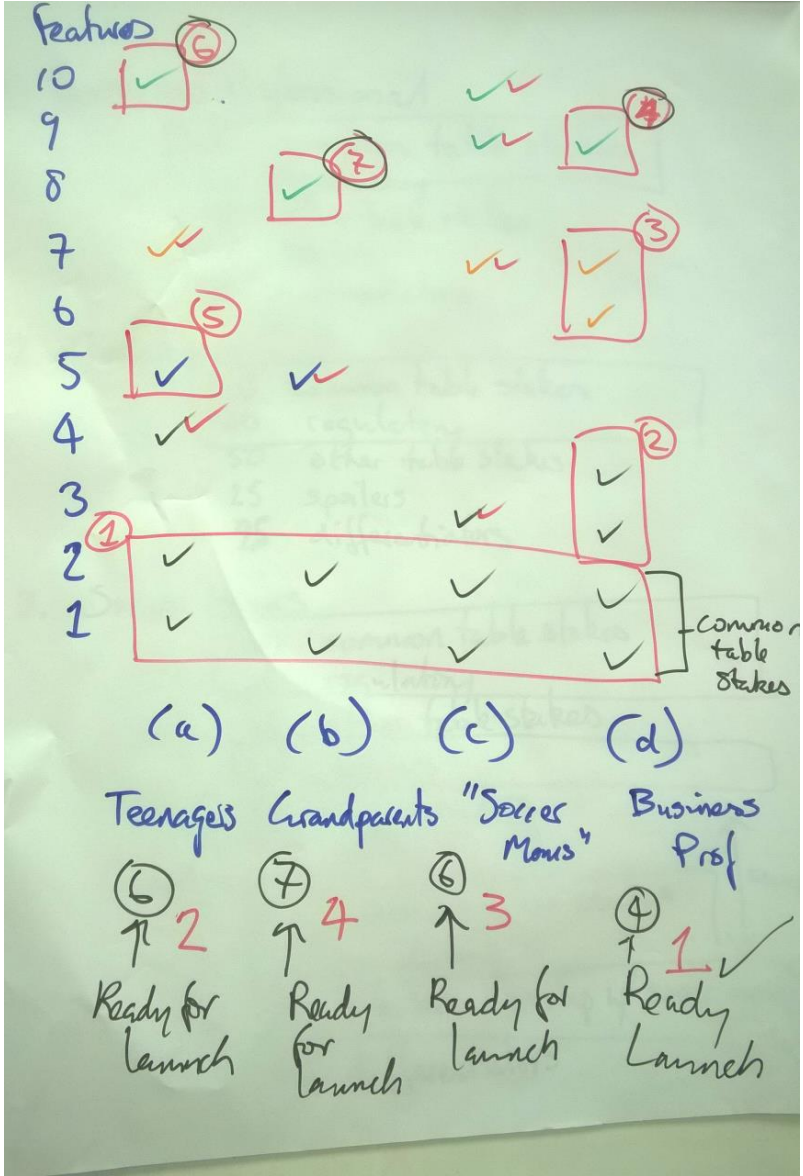 Features
6
10
4
9
7
8
7
3
6
5
5
4
2
3
1
2
1
common
table
stakes
(a) (b) (c) (d)
Teenagers Grandparents "Soccer Moms" Business Prof
6 7 6 4
2 4 3 1
Ready for Launch
Ready for Launch
Ready for Launch
Ready Launch